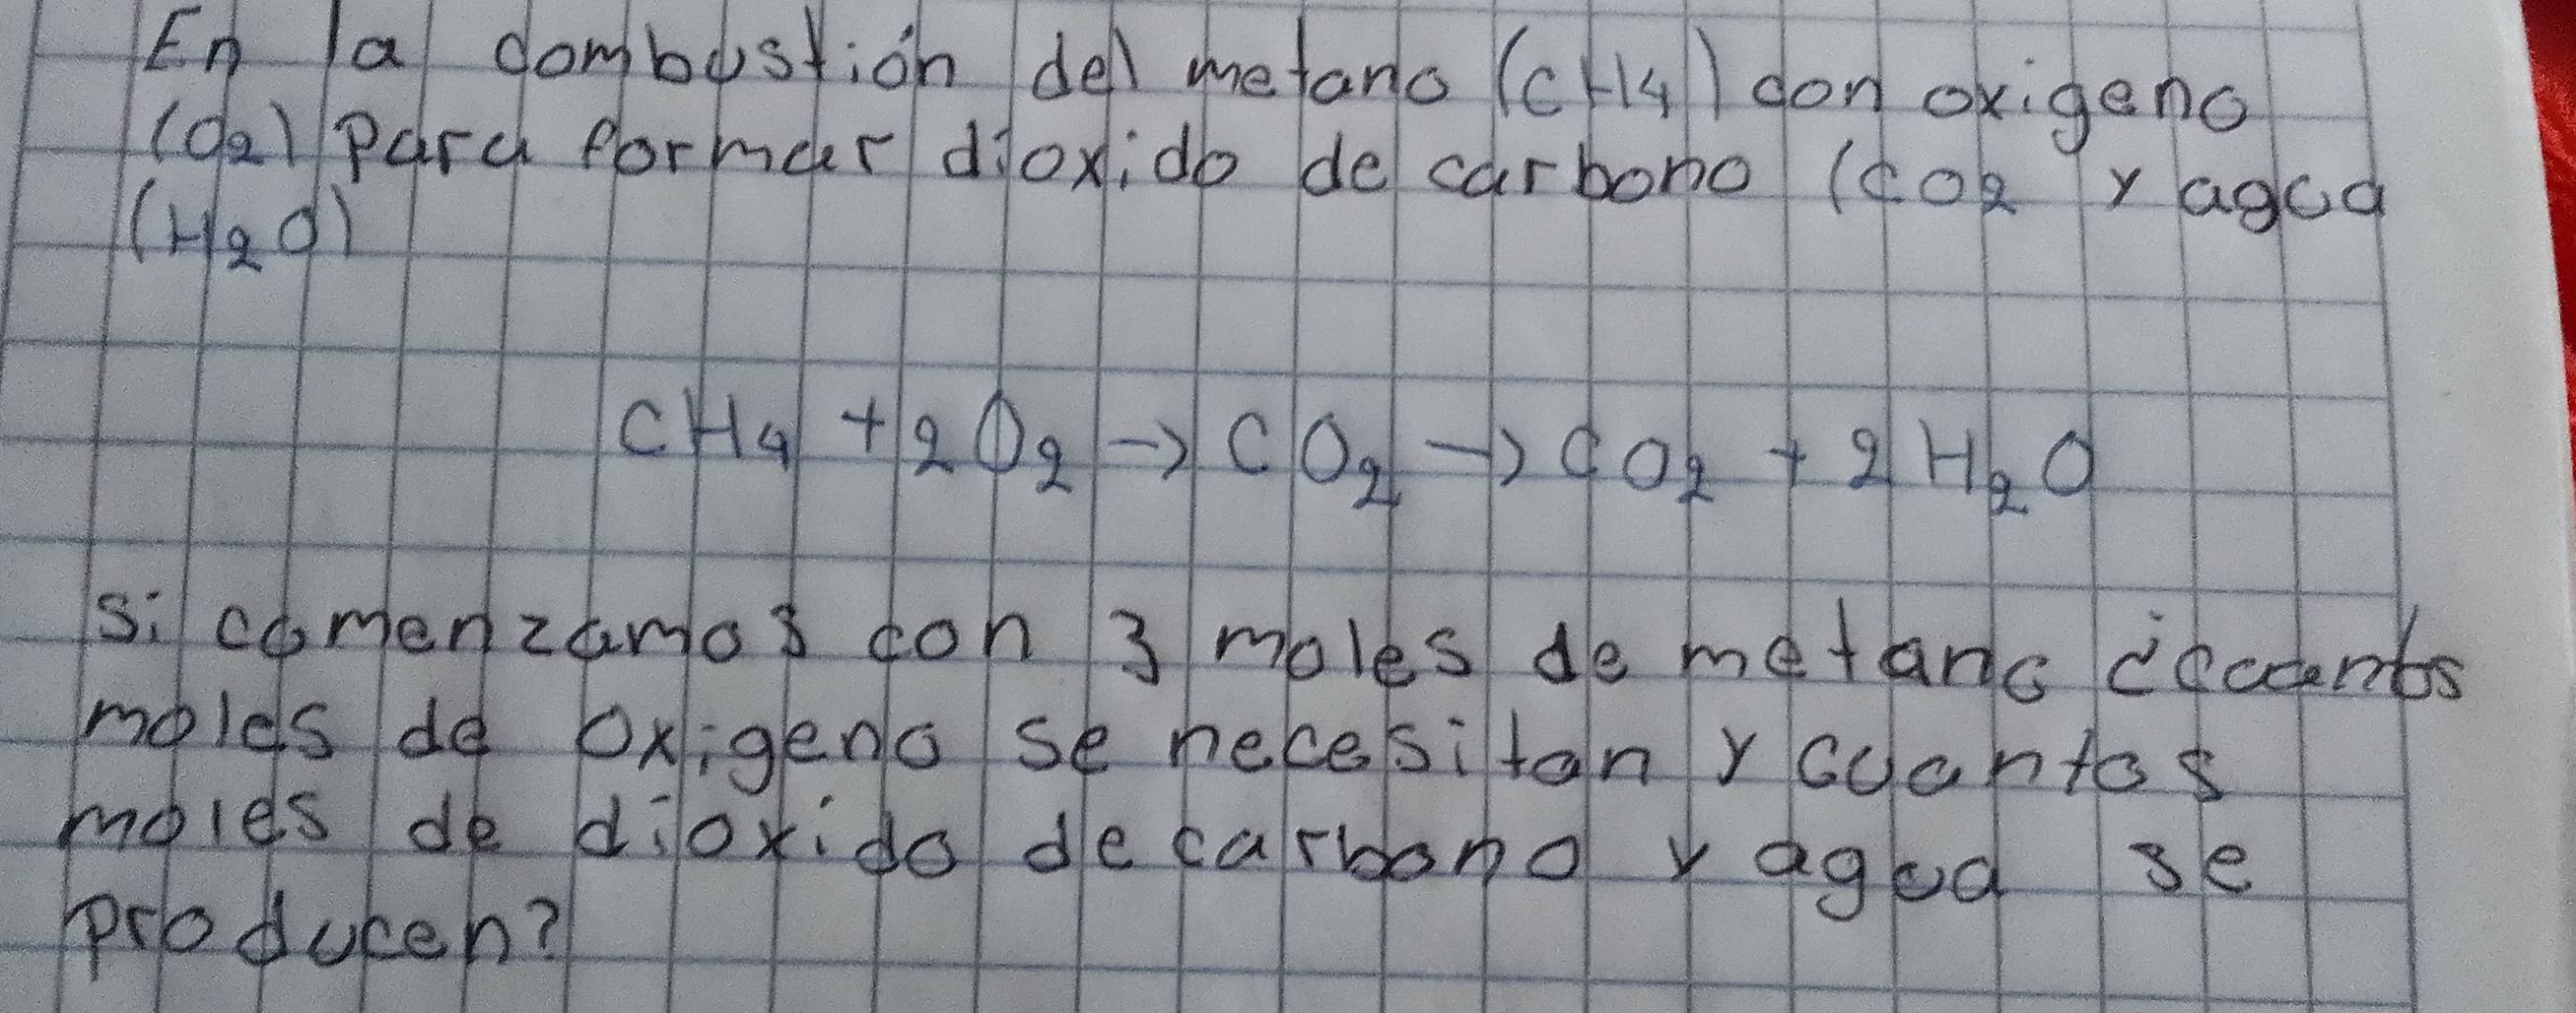 En la combustión del metano (CH4) con oxigeno
(O2) Para formar dioxido de carbono (CO2 y agua
(H2O)
CH4 + 2O2 → CO2 → CO2 + 2H2O
Si comenzamos con 3 moles de metano
moles de oxigeno se necesitan y cuantos
moles de dioxido de carbono y agua se
producen?